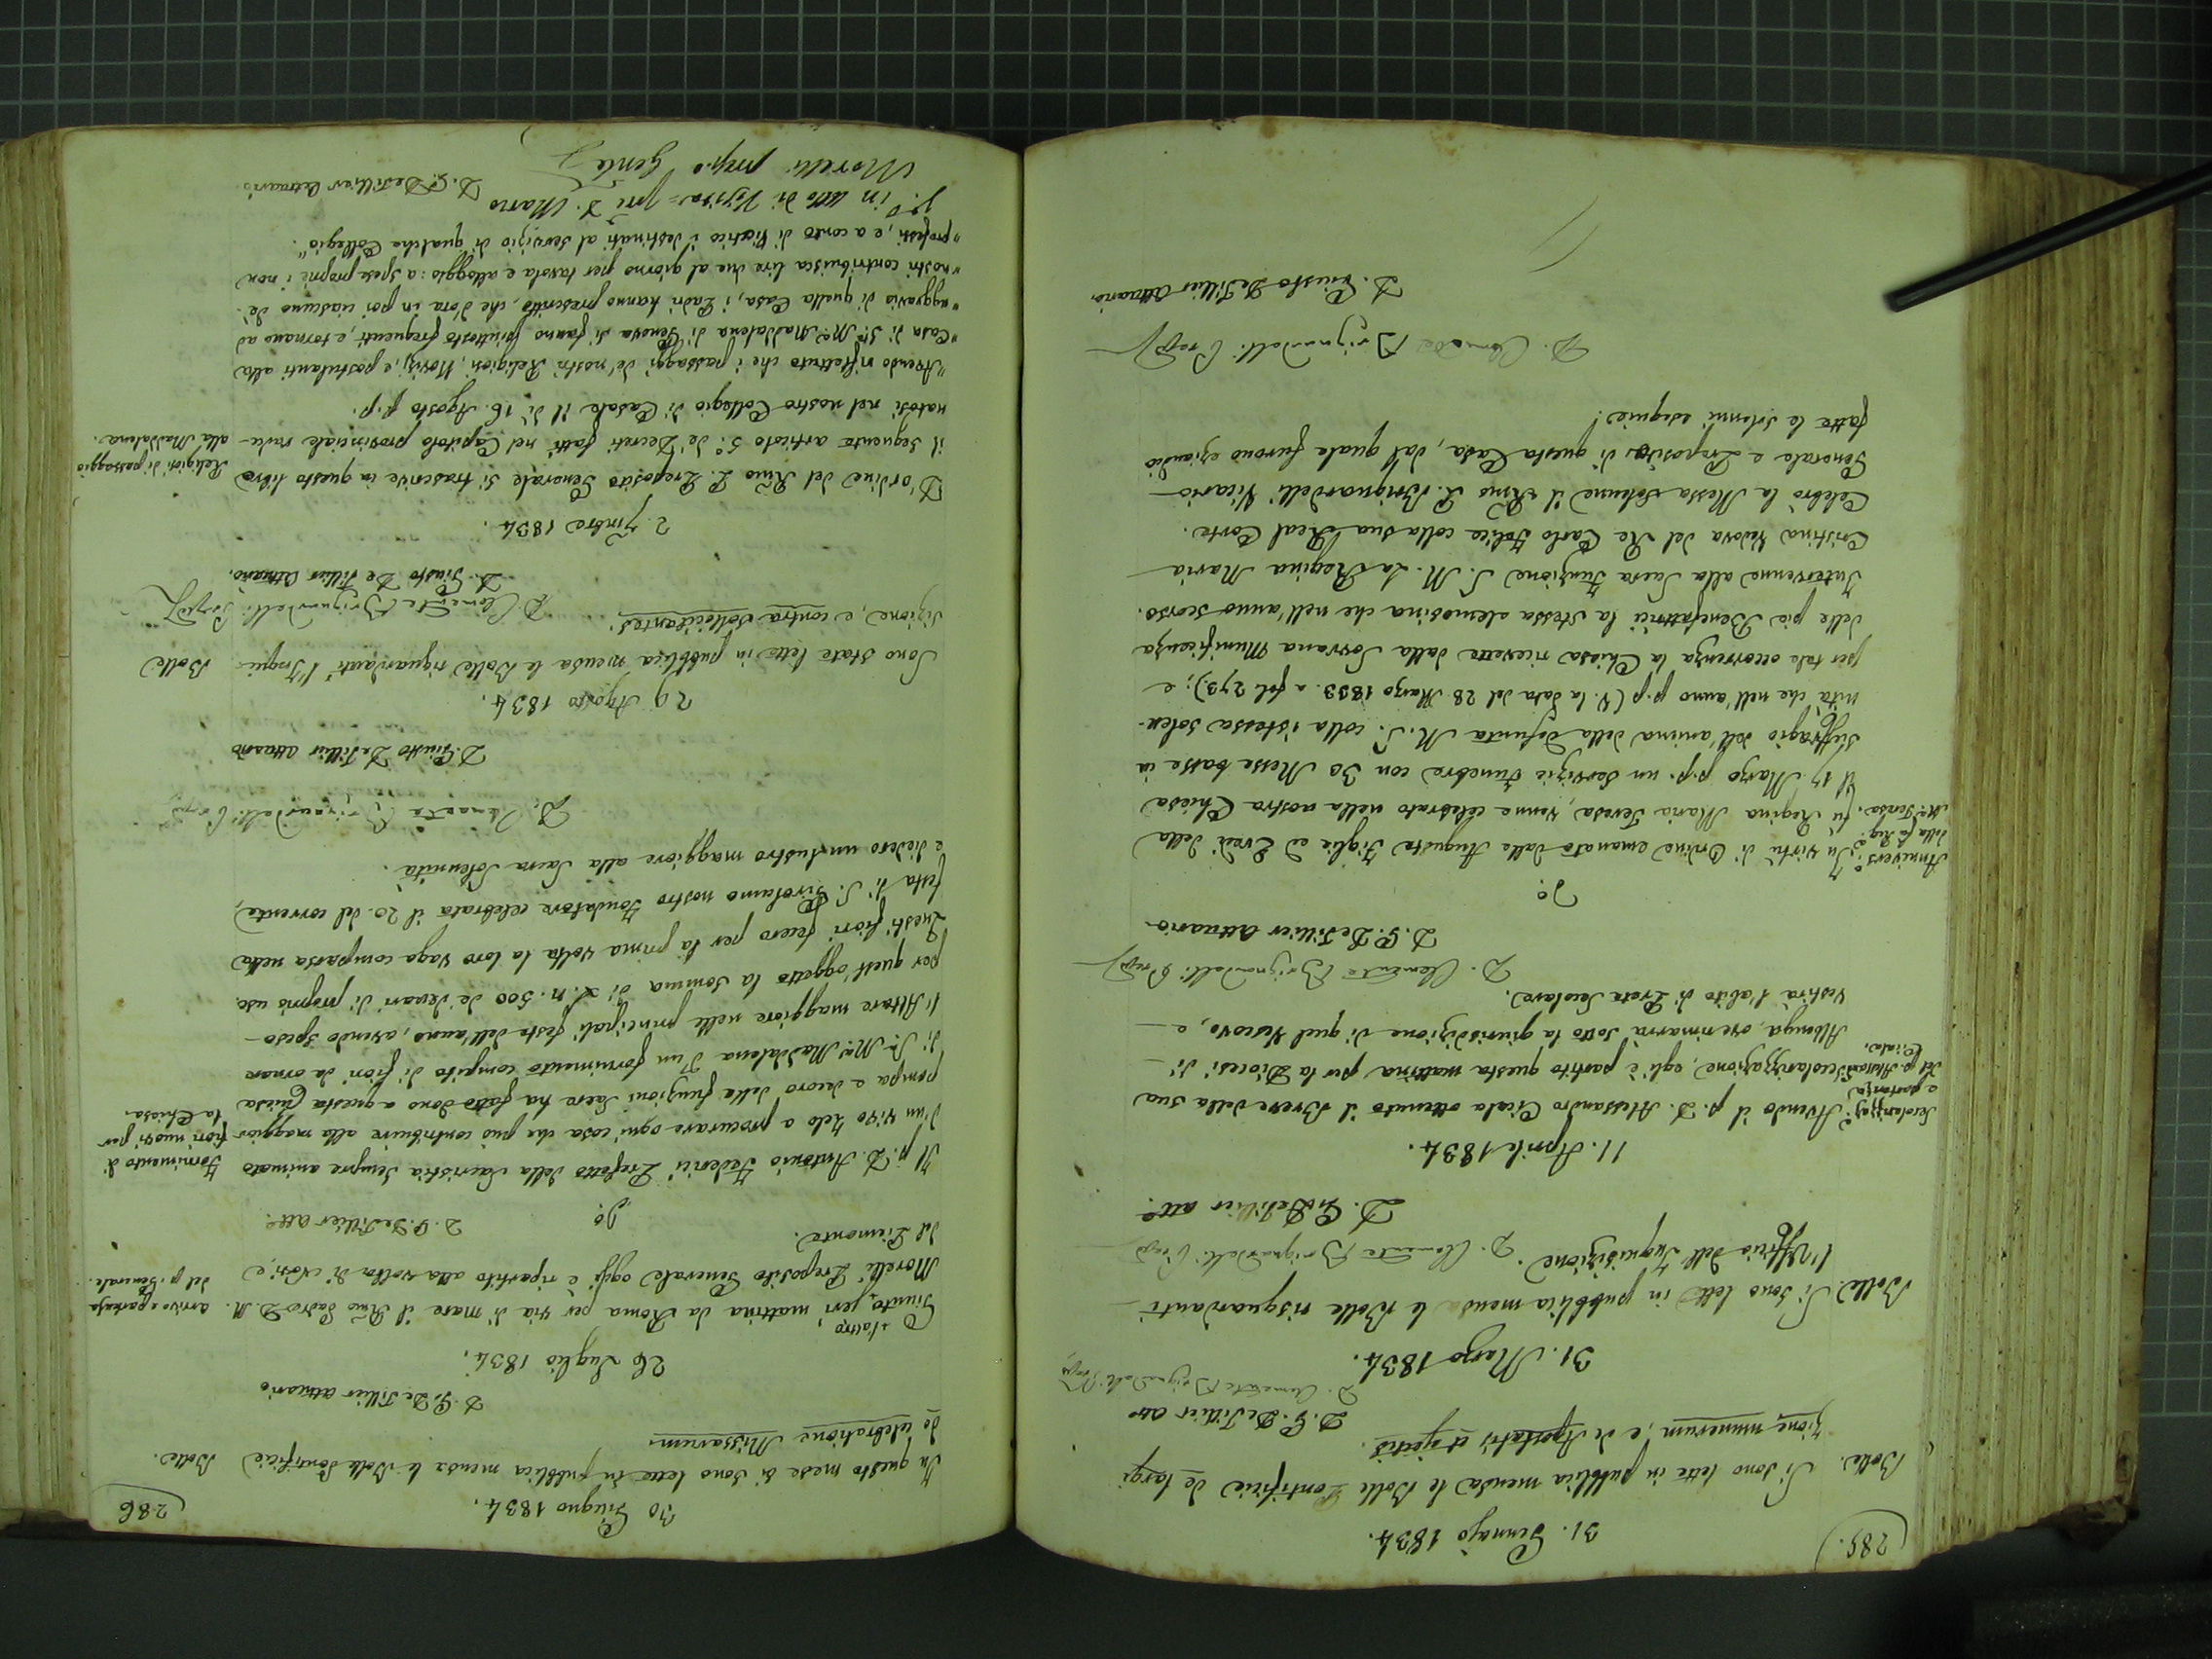 285.
31. Gennajo 1834.
Bolle. Si sono lette in pubblica mensa le Bolle Pontificie de largi-
zione munerum, e de Apostatis, et ejectis.
D. G. DeTillier att.
D. Clemente Brignardelli Prep.
31. Marzo 1834.
Bolle. Si sono lette in pubblica mensa le Bolle risguardanti
l'Uffizio dell'Inquisizione. D. Clemente Brignardelli Prep.
D. G. DeTillier att.
11. Aprile 1834.
Secolarizzaz.e
e partenza
del p. Alessand.
Ciala.
Avendo il p. D. Alessandro Ciala ottenuto il Breve della sua
Secolarizzazione, egli è partito questa mattina per la Diocesi di
Albenga, ove rimarrà sotto la giurisdizione di quel Vescovo, e
vestirà l'abito di Prete Secolare.
D. Clemente Brignardelli Prep.
D. G. DeTillier Attuario
Do.
Annivers.o
della fu Reg.a
M.a Teresa.
In virtù di Ordine emanato dalle Auguste Figlie ed Eredi della
fu Regina Maria Teresa, venne celebrato nella nostra Chiesa
il 17. Marzo p.p. un Servizio funebre con 30 Messe basse in
suffragio dell'anima della Defunta M. S. colla istessa solen-
nità che nell'anno p.p. (V. la data del 28 Marzo 1833. a fol. 273.); e
per tale occorrenza la Chiesa ricevette dalla Sovrana Munificenza
delle pie Benefattrici la stessa elemosina che nell'anno scorso.
Intervenne alla Sacra Funzione S. M. la Regina Maria
Cristina Vedova del Re Carlo Felice colla sua Real Corte.
Celebrò la Messa Solenne il Rmo P. Brignardelli Vicario
Generale e Preposito di questa Casa, dal quale furono eziandio
fatte le solenni esequie.
D. Clemente Brignardelli Prep.
D. Giusto DeTillier Attuario
286
30 Giugno 1834.
In questo mese si sono lette in pubblica mensa le Bolle Pontificie
de celebratione Missarum
Bolle.
D. G. DeTillier Attuario
26 Luglio 1834.
Giunto l'altro jeri mattina da Roma per via di mare il Rmo Padre D. M.
Morelli Preposito Generale oggi è ripartito alla volta di Novi e
del Piemonte.
arrivo e partenza
del p. Generale.
D. G. DeTillier att.
Do.
Il p. D. Antonio Federici Prefetto della Sacristia sempre animato
d'un vivo zelo a procurare ogni cosa che può contribuire alla maggior
pompa e decoro delle funzioni Sacre ha fatto dono a questa Chiesa
di S.ta M.a Maddalena d'un fornimento compito di fiori da ornar
l'Altare maggiore nelle principali feste dell'anno, avendo speso
per quest'oggetto la somma di L. n. 500 de' denari di proprio uso.
Questi fiori fecero per la prima volta la loro vaga comparsa nella
festa di S. Girolamo nostro Fondatore celebrata il 20. del corrente,
e diedero un lustro maggiore alla Sacra Solennità.
Fornimento di
fiori nuovi per
la Chiesa.
D. Clemente Brignardelli Prep.
D. Giusto DeTillier Attuario
29 Agosto 1834.
Sono state lette in pubblica mensa le Bolle riguardanti l'Inqui-
sizione, e contra sollicitantes.
Bolle
D. Clemente Brignardelli Prep.
D. Giusto De Tillier Attuario.
2. 7mbre 1834.
D'ordine del Rmo P. Preposito Generale si trascrive in questo libro
il seguente articolo 5.o de' Decreti fatti nel Capitolo provinciale radu-
natosi nel nostro Collegio di Casale il dì 16. Agosto p.p.
Religiosi di passaggio
alla Maddalena.
"Avendo riflettuto che i passaggi de' nostri Religiosi, Novizj, e postulanti alla
"Casa di S.ta M.a Maddalena di Genova si fanno piuttosto frequenti, e tornano ad
"aggravio di quella Casa, i Padri hanno prescritto, che d'ora in poi ciascuno de'
"nostri contribuisca lire due al giorno per tavola e alloggio: a spese proprie i non
"professi, e a conto di viatico i destinati al servizio di qualche Collegio".
in atto di Visita = D. Marco
Morelli prep.o Gen.le
D. G. DeTillier Attuario